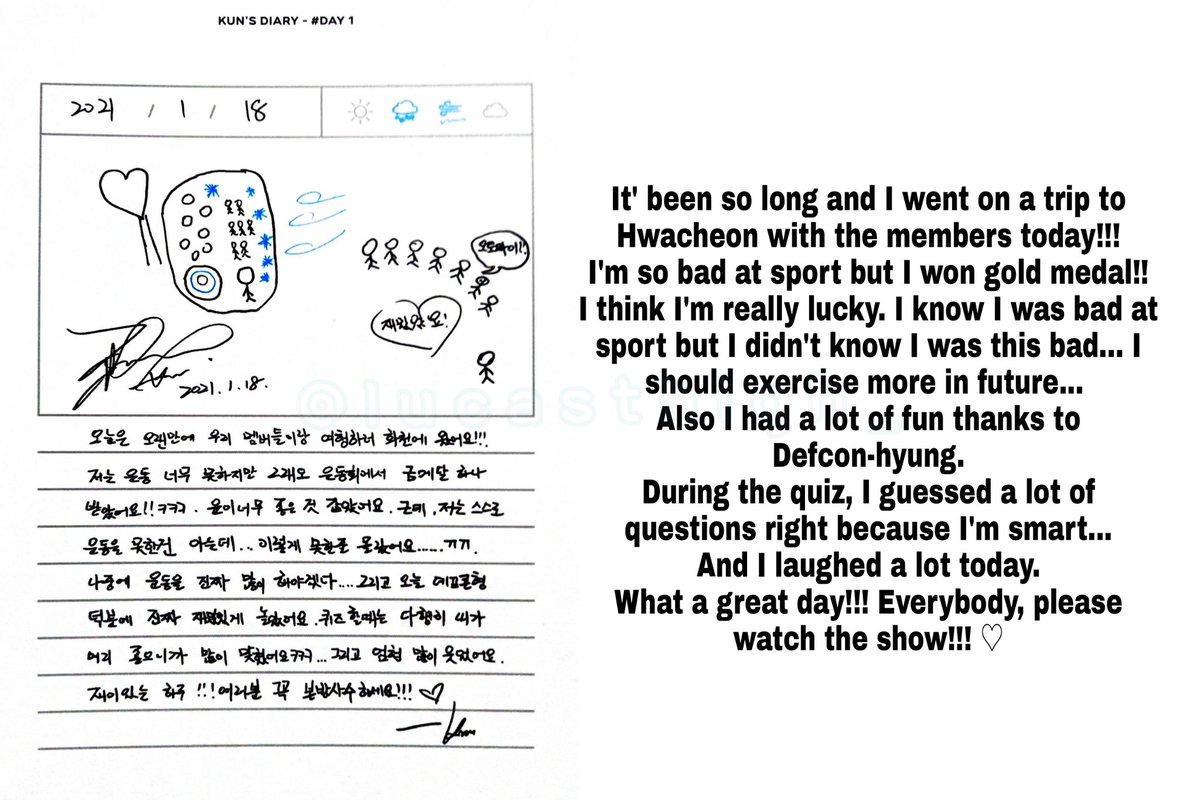 KUN'S DIARY - #DAY 1
2021 / 1 / 18
오또케이!!
재밌어요!
2021.1.18.
오늘은 오랜만에 우리 멤버들이랑 여행하러 화천에 왔어요!!!
저는 운동 너무 못하지만 그래도 운동회에서 금메달 하나
받았어요!! ㅋㅋㅋ. 운이 너무 좋은 것 같았어요. 근데, 저는 스스로
운동을 못한건 아는데... 이렇게 못한줄 몰랐어요...... ㄲㄲ.
나중에 운동을 진짜 많이 해야겠다.... 그리고 오늘 데프콘형
덕분에 진짜 재밌있게 놀았어요. 퀴즈 할때는 다행히 제가
머리 좋으니까 많이 맞췄어요 ㅋㅋㅋ... 그리고 엄청 많이 웃었어요.
재미있는 하루 !!! 여러분 꼭 본방사수하세요!!! ♡
@lucast
It' been so long and I went on a trip to
Hwacheon with the members today!!!
I'm so bad at sport but I won gold medal!!
I think I'm really lucky. I know I was bad at
sport but I didn't know I was this bad... I
should exercise more in future...
Also I had a lot of fun thanks to
Defcon-hyung.
During the quiz, I guessed a lot of
questions right because I'm smart...
And I laughed a lot today.
What a great day!!! Everybody, please
watch the show!!! ♡